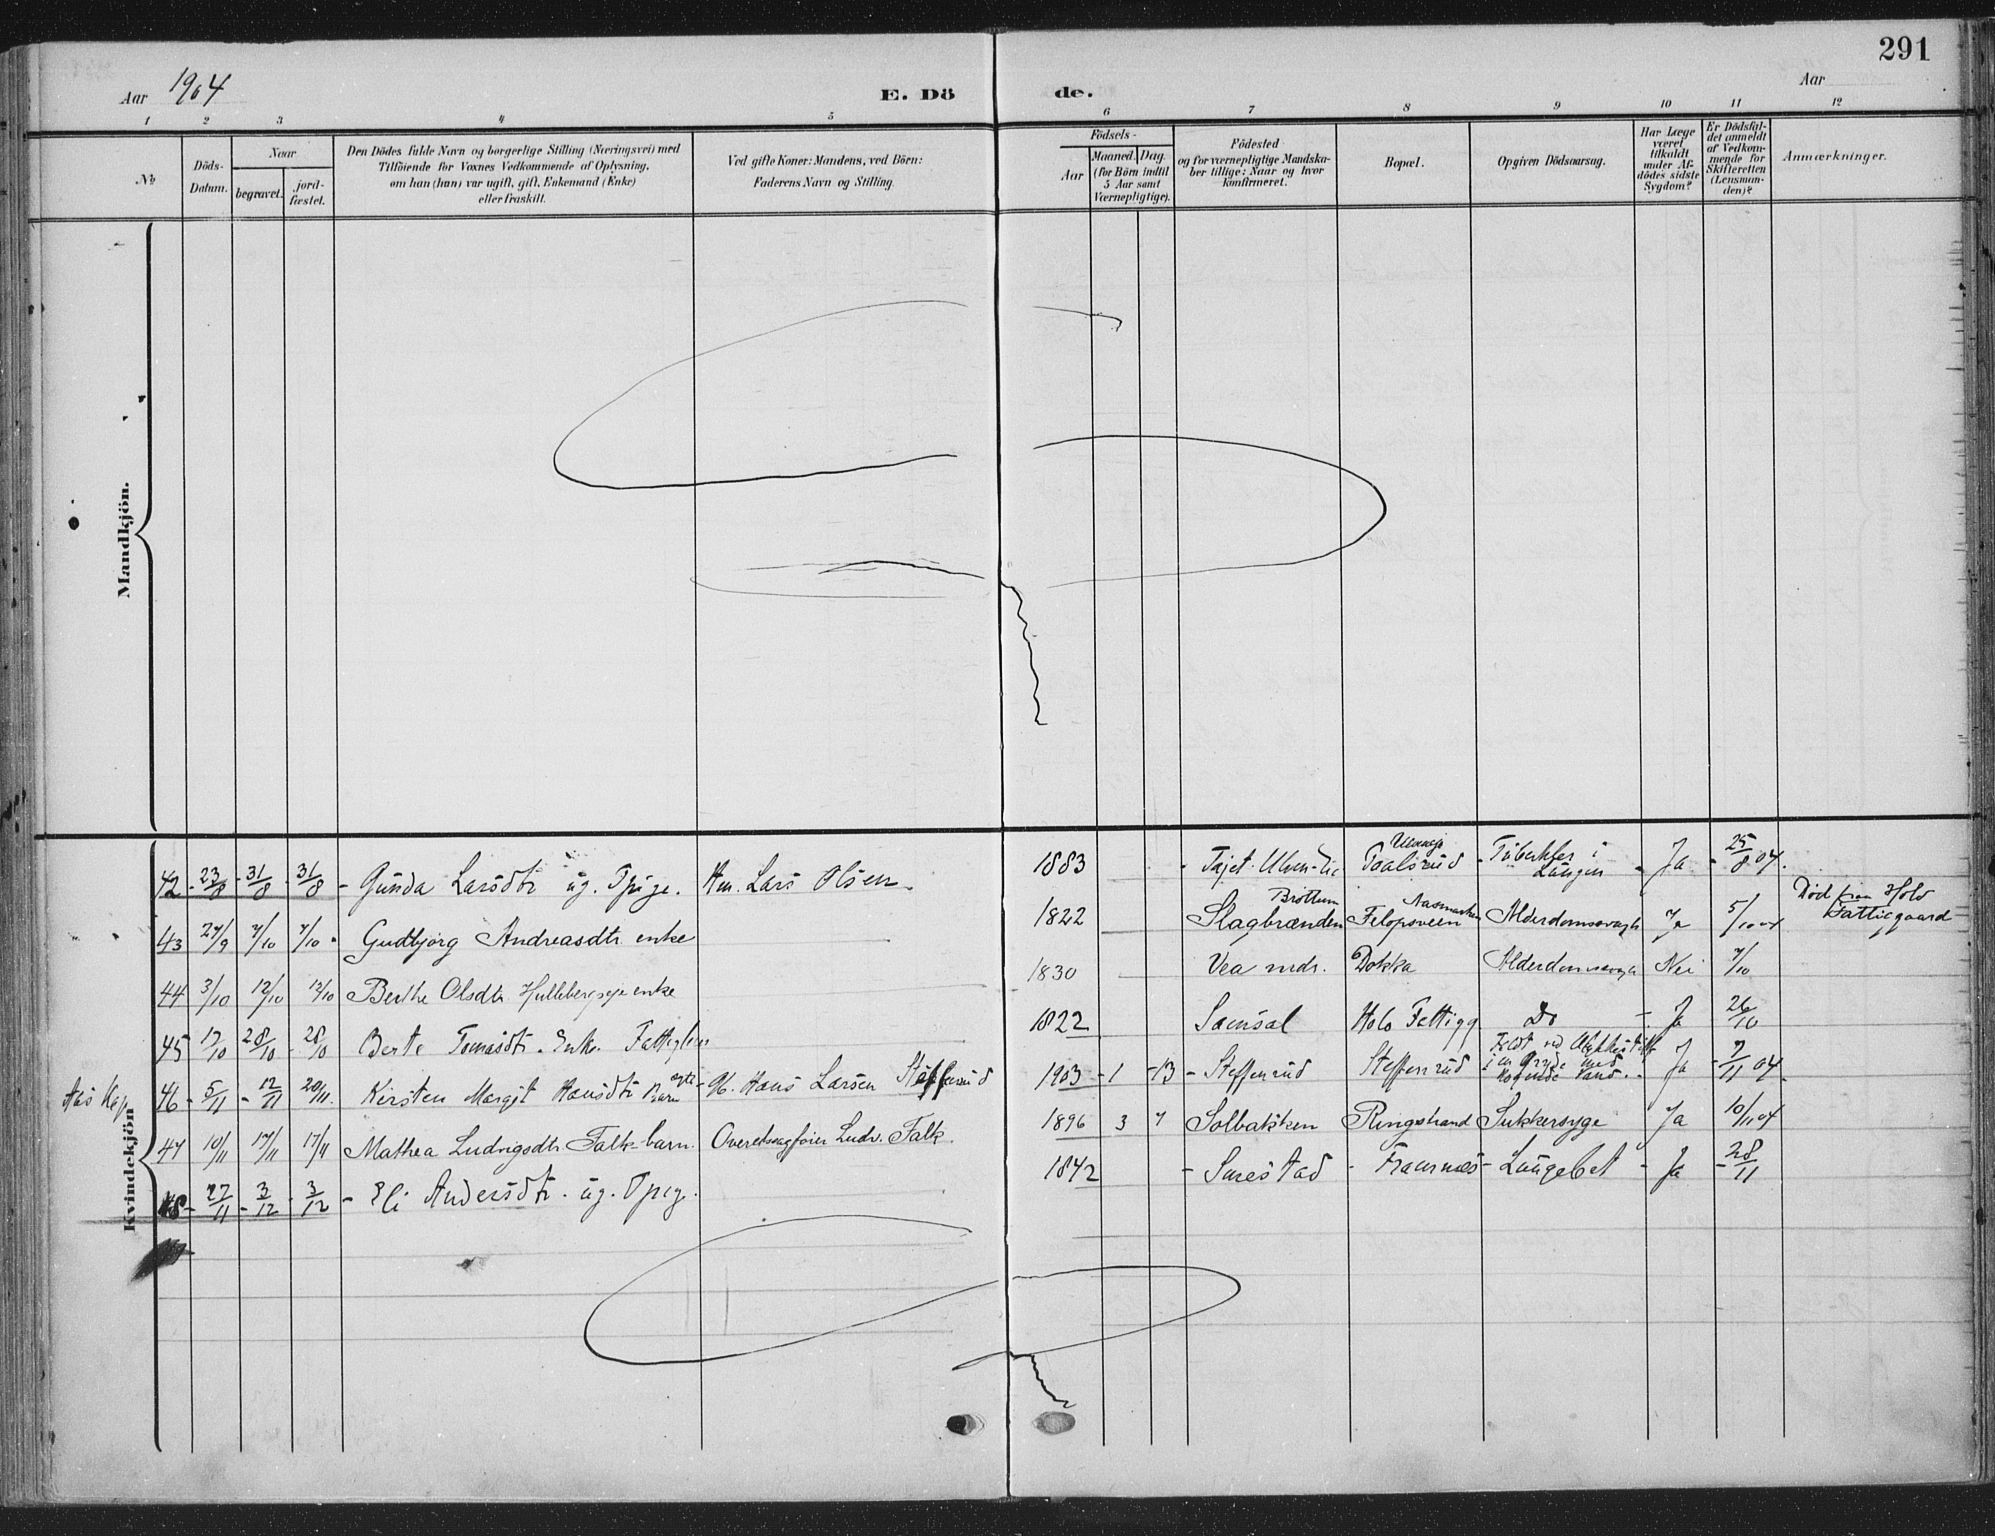 291
Aar 1904
E. Dö de.
Aar
1 2 3 4 5 6 7 8 9 10 11 12
No
Döds-Datum.
Naar
begravet.
jord-fæstet.
Den Dödes fulde Navn og borgerlige Stilling (Næringsvei) med
Tilföiende for Voxnes Vedkommende af Oplysning,
om han (hun) var ugift, gift, Enkemand (Enke)
eller fraskilt.
Ved gifte Koner: Mandens, ved Börn:
Faderens Navn og Stilling.
Födsels-
Aar
Maaned. Dag.
(for Börn indtil
5 Aar samt
Værnepligtige).
Födested
og for værnepligtige Mandska-
ber tillige: Naar og hvor
konfirmeret.
Bopæl.
Opgiven Dödsaarsag.
Har Læge
været
tilkaldt
under Af-
dödes sidste
Sygdom?
Er Dödsfal-
det anmeldt
af Vedkom-
mende for
Skifteretten
(Lensman-
den)?
Anmærkninger.
Mandkjön.
Kvindekjön
42 - 23/8 - 31/8 - 31/8 - Gunda Larsdtr ug. Pige. Hm. Lars Olsen. 1883 Toalsrud Lungen - Ja - 25/8 04.
43 27/9 7/10 7/10 Gudbjörg Andreasdtr enke 1822 Bröttum Slagbrænden Alderdomssvagh Ja 5/10 04 Död fra Holo Fattiggaard
44 3/10 12/10 12/10 Berthe Olsdtr enke 1830 Vea mdr. Dokka Alderdomssvagh Nei 7/10
45 28/10 28/10 Berte Tomasdtr. Enke. 1822 Holo Fattigg Do - Ja 26/10
Aas Kap 46 - 5/11 - 12/11 20/11. Kirsten Margit Hansdtr ægte Barn Hans Larsen Steffensrud 1903 - 1 - 13 - Steffenrud Steffenrud i en Gryde med kogende Vand. - Ja - 7/11 04
47 10/11 17/11 17/11 Mathea Ludvigsdtr Falk - barn. Overretssagförer Ludv. Falk. 1896 3 7 Solbakken Ringstrand Sukkersyge Ja 10/11 04
48 - 27/11 - 3/12 - 3/12 - Eli Andersdtr. ug. Pige. 1842 - Langebet - Ja - 28/11